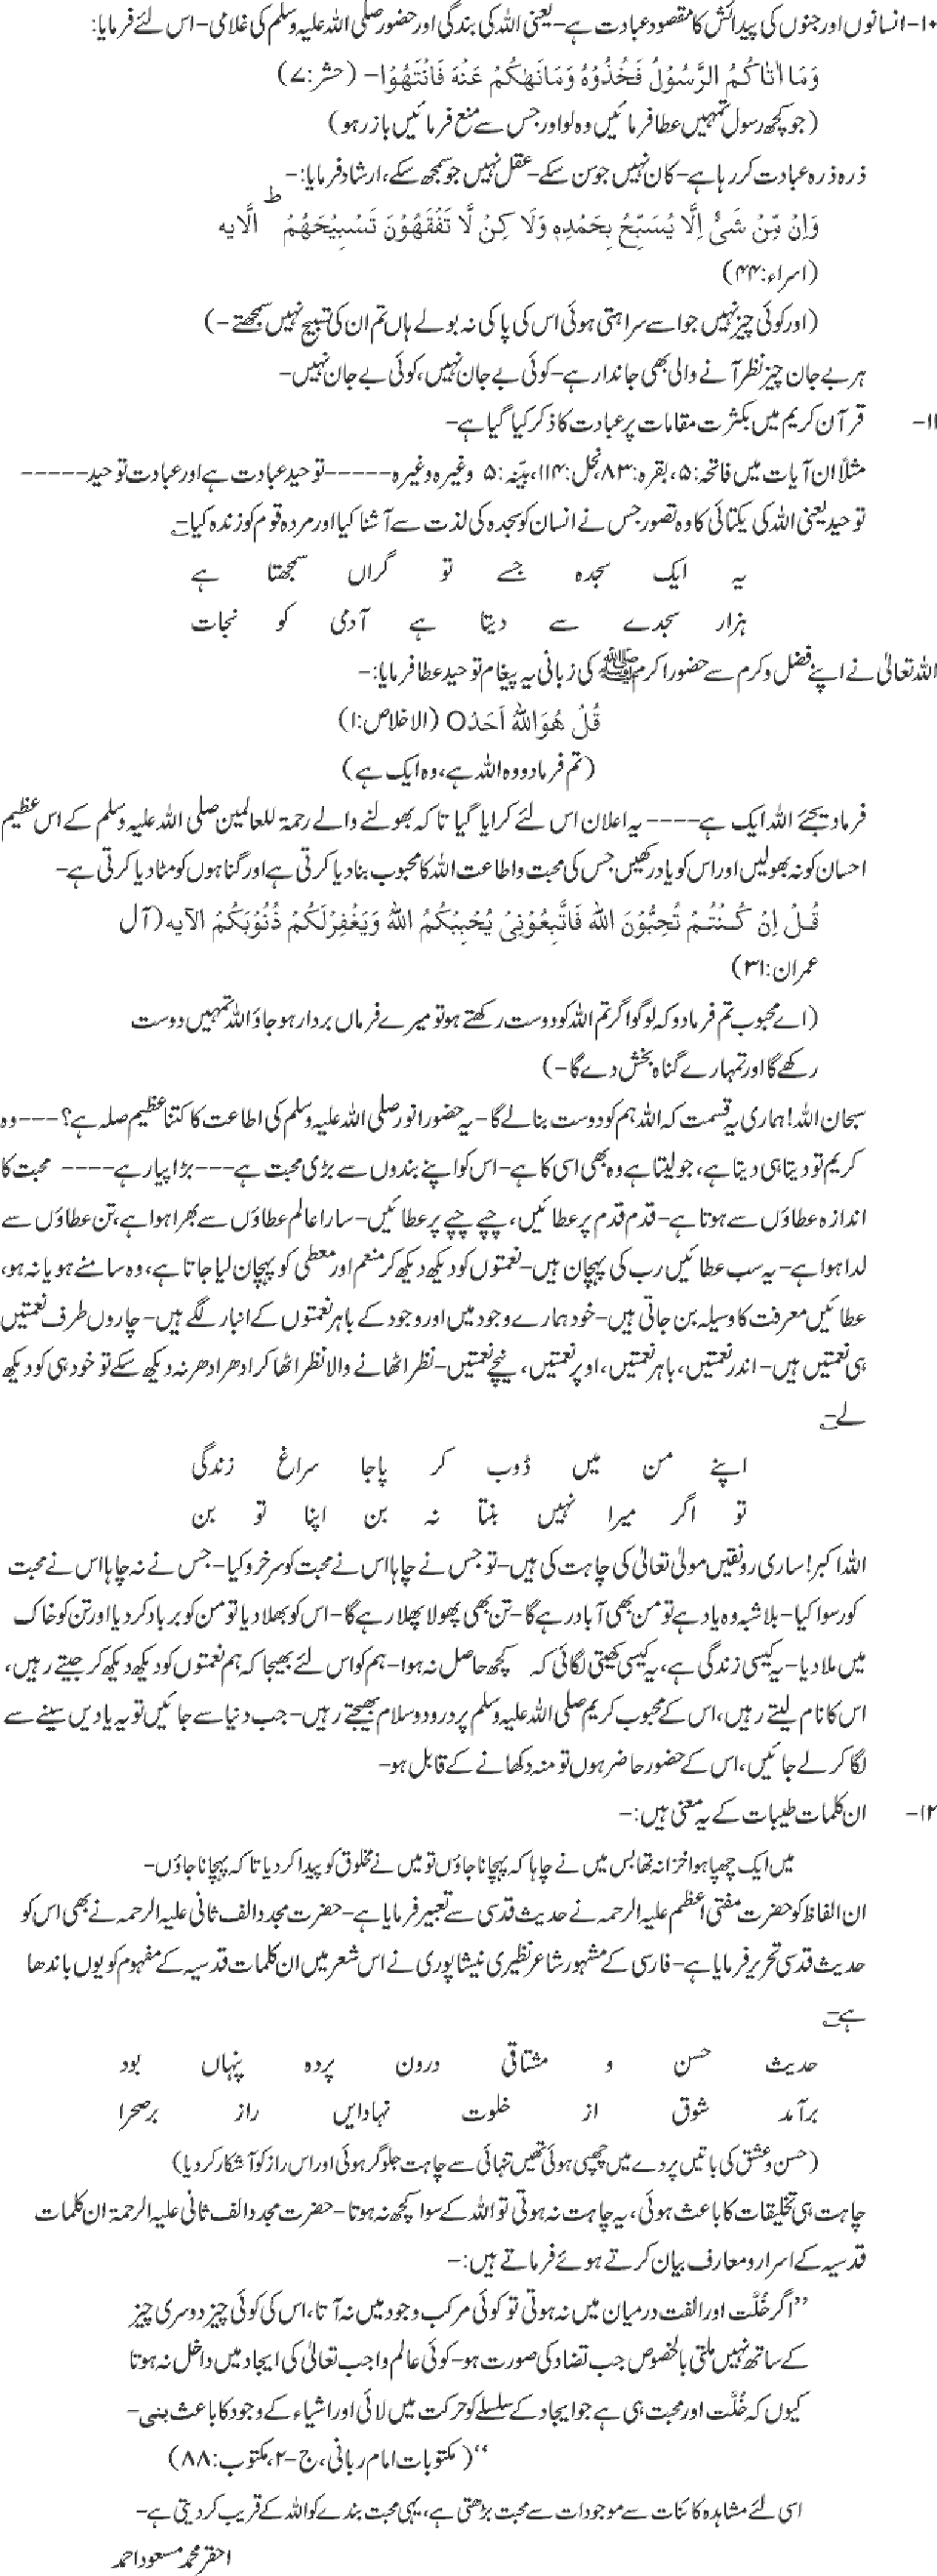 ۱۰- انسانوں اور جنوں کی پیدائش کا مقصود عبادت ہے- یعنی اللہ کی بندگی اور حضور صلی اللہ علیہ وسلم کی غلامی- اس لئے فرمایا:
وَمَا اٰتَاکُمُ الرَّسُوْلُ فَخُذُوْہُ وَمَانَھٰکُمْ عَنْہُ فَانْتَھُوْا- (حشر:۷)
(جو کچھ رسول تمہیں عطا فرمائیں وہ لو اور جس سے منع فرمائیں باز رہو)
ذرہ ذرہ عبادت کر رہا ہے- کان نہیں جو سن سکے- عقل نہیں جو سمجھ سکے، ارشاد فرمایا:-
وَاِنْ مِّنْ شَیْٔ اِلَّا یُسَبِّحُ بِحَمْدِہٖ وَلَا کِنْ لَّا تَفْقَھُوْنَ تَسْبِیْحَھُمْ ط الَّایہ
(اسراء:۴۴)
(اور کوئی چیز نہیں جو اسے سراہتی ہوئی اس کی پاکی نہ بولے ہاں تم ان کی تسبیح نہیں سمجھتے-)
ہر بے جان چیز نظر آنے والی بھی جاندار ہے- کوئی بے جان نہیں، کوئی بے جان نہیں-
۱۱- قرآن کریم میں بکثرت مقامات پر عبادت کا ذکر کیا گیا ہے-
مثلاً ان آیات میں فاتحہ:۵، بقرہ:۸۳، نحل:۱۱۴، بیّنہ:۵ وغیرہ وغیرہ-----توحید عبادت ہے اور عبادت توحید-----
توحید یعنی اللہ کی یکتائی کا وہ تصور جس نے انسان کو سجدہ کی لذت سے آشنا کیا اور مردہ قوم کو زندہ کیا-ؔ
یہ ایک سجدہ جسے تو گراں سمجھتا ہے
ہزار سجدے سے دیتا ہے آدمی کو نجات
اللہ تعالیٰ نے اپنے فضل و کرم سے حضور اکرم ﷺ کی زبانی یہ پیغام توحید عطا فرمایا:-
قُلْ ھُوَاللّٰہُ اَحَدٌO (الاخلاص:۱)
(تم فرمادو وہ اللہ ہے، وہ ایک ہے)
فرمادیجئے اللہ ایک ہے---- یہ اعلان اس لئے کرایا گیا تاکہ بھولنے والے رحمۃ للعالمین صلی اللہ علیہ وسلم کے اس عظیم
احسان کو نہ بھولیں اور اس کو یاد رکھیں جس کی محبت و اطاعت اللہ کا محبوب بنادیا کرتی ہے اور گناہوں کو مٹادیا کرتی ہے-
قُلْ اِنْ کُنْتُمْ تُحِبُّوْنَ اللّٰہَ فَاتَّبِعُوْنِیْ یُحْبِبْکُمُ اللّٰہُ وَیَغْفِرْلَکُمْ ذُنُوْبَکُمْ الآیہ (آل
عمران:۳۱)
(اے محبوب تم فرمادو کہ لوگو اگر تم اللہ کو دوست رکھتے ہو تو میرے فرماں بردار ہوجاؤ اللہ تمہیں دوست
رکھے گا اور تمہارے گناہ بخش دے گا-)
سبحان اللہ! ہماری یہ قسمت کہ اللہ ہم کو دوست بنالے گا- یہ حضور انور صلی اللہ علیہ وسلم کی اطاعت کا کتنا عظیم صلہ ہے؟---وہ
کریم تو دیتا ہی دیتا ہے، جو لیتا ہے وہ بھی اسی کا ہے- اس کو اپنے بندوں سے بڑی محبت ہے---بڑا پیار ہے---- محبت کا
اندازہ عطاؤں سے ہوتا ہے- قدم قدم پر عطائیں، چپے چپے پر عطائیں- سارا عالم عطاؤں سے بھرا ہوا ہے، تن عطاؤں سے
لدا ہوا ہے- یہ سب عطائیں رب کی پہچان ہیں- نعمتوں کو دیکھ دیکھ کر منعم اور معطی کو پہچان لیا جاتا ہے، وہ سامنے ہو یا نہ ہو،
عطائیں معرفت کا وسیلہ بن جاتی ہیں- خود ہمارے وجود میں اور وجود کے باہر نعمتوں کے انبار لگے ہیں- چاروں طرف نعمتیں
ہی نعمتیں ہیں- اندر نعمتیں، باہر نعمتیں، اوپر نعمتیں، نیچے نعمتیں- نظر اٹھانے والا نظر اٹھا کر ادھر ادھر نہ دیکھ سکے تو خود ہی کو دیکھ
لے-ؔ
اپنے من میں ڈوب کر پاجا سراغ زندگی
تو اگر میرا نہیں بنتا نہ بن اپنا تو بن
اللہ اکبر! ساری رونقیں مولیٰ تعالیٰ کی چاہت کی ہیں- تو جس نے چاہا اس نے محبت کو سرخرو کیا- جس نے نہ چاہا اس نے محبت
کو رسوا کیا- بلاشبہ وہ یاد ہے تو من بھی آباد رہے گا- تن بھی پھولا پھلا رہے گا- اس کو بھلادیا تو من کو برباد کردیا اور تن کو خاک
میں ملادیا- یہ کیسی زندگی ہے، یہ کیسی کھیتی لگائی کہ کچھ حاصل نہ ہوا- ہم کو اس لئے بھیجا کہ ہم نعمتوں کو دیکھ دیکھ کر جیتے رہیں،
اس کا نام لیتے رہیں، اس کے محبوب کریم صلی اللہ علیہ وسلم پر درود و سلام بھیجتے رہیں- جب دنیا سے جائیں تو یہ یادیں سینے سے
لگا کر لے جائیں، اس کے حضور حاضر ہوں تو منہ دکھانے کے قابل ہو-
۱۲- ان کلمات طیبات کے یہ معنی ہیں:-
میں ایک چھپا ہوا خزانہ تھا بس میں نے چاہا کہ پہچانا جاؤں تو میں نے مخلوق کو پیدا کردیا تاکہ پہچانا جاؤں-
ان الفاظ کو حضرت مفتی اعظم علیہ الرحمہ نے حدیث قدسی سے تعبیر فرمایا ہے- حضرت مجدد الف ثانی علیہ الرحمہ نے بھی اس کو
حدیث قدسی تحریر فرمایا ہے- فارسی کے مشہور شاعر نظیری نیشاپوری نے اس شعر میں ان کلمات قدسیہ کے مفہوم کو یوں باندھا
ہے-ؔ
حدیث حسن و مشتاقی درون پردہ پنہاں بود
برآمد شوق از خلوت نہادایں راز برصحرا
(حسن و عشق کی باتیں پردے میں چھپی ہوئی تھیں تنہائی سے چاہت جلوگر ہوئی اور اس راز کو آشکار کردیا)
چاہت ہی تخلیقات کا باعث ہوئی، یہ چاہت نہ ہوتی تو اللہ کے سوا کچھ نہ ہوتا- حضرت مجدد الف ثانی علیہ الرحمۃ ان کلمات
قدسیہ کے اسرار و معارف بیان کرتے ہوئے فرماتے ہیں:-
”اگر خُلَّت اور الفت درمیان میں نہ ہوتی تو کوئی مرکب وجود میں نہ آتا، اس کی کوئی چیز دوسری چیز
کے ساتھ نہیں ملتی بالخصوص جب تضاد کی صورت ہو- کوئی عالم واجب تعالیٰ کی ایجاد میں داخل نہ ہوتا
کیوں کہ خُلَّت اور محبت ہی ہے جو ایجاد کے سلسلے کو حرکت میں لائی اور اشیاء کے وجود کا باعث بنی-
“(مکتوبات امام ربانی، ج-۲، مکتوب:۸۸)
اسی لئے مشاہدہ کائنات سے موجودات سے محبت بڑھتی ہے، یہی محبت بندے کو اللہ کے قریب کردیتی ہے-
احقر محمد مسعود احمد